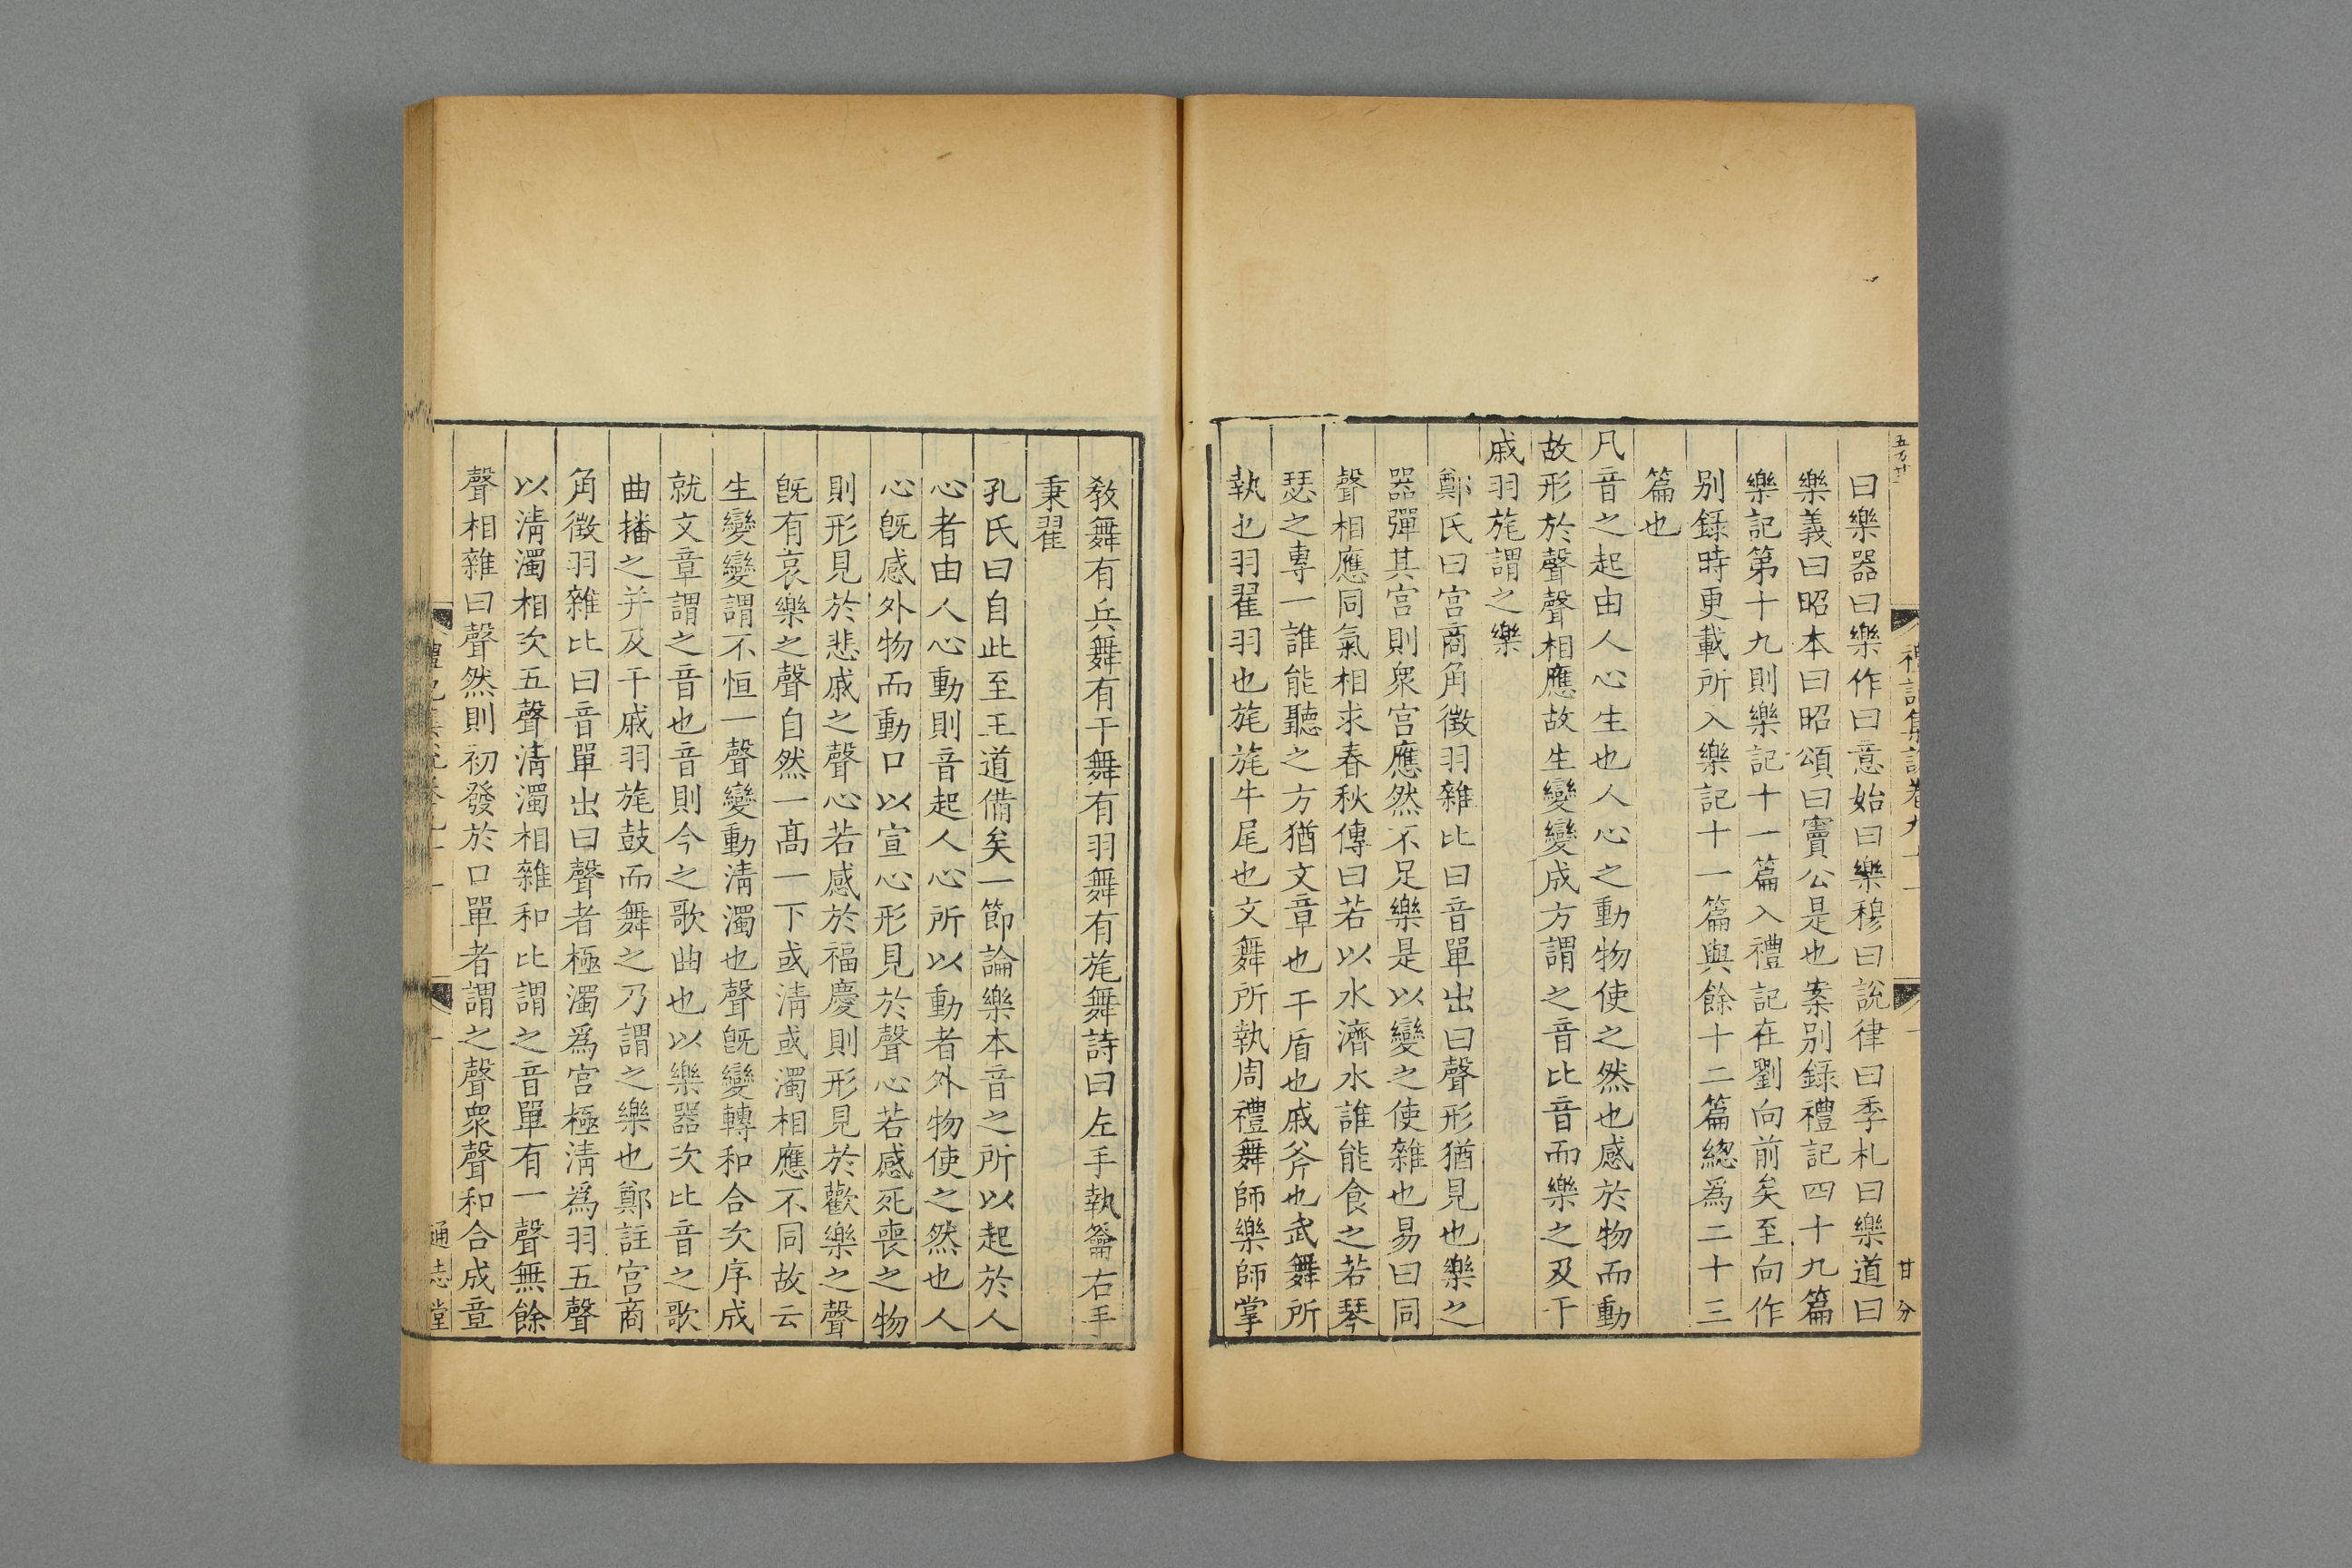 禮記集說卷九十一
甘 分
曰樂器曰樂作曰意始曰樂穆曰說律曰季札曰樂道曰
樂義曰昭本曰昭頌曰竇公是也案别錄禮記四十九篇
樂記第十九則樂記十一篇入禮記在劉向前矣至向作
别錄時更載所入樂記十一篇與餘十二篇緫爲二十三
篇也
凡音之起由人心生也人心之動物使之然也感於物而動
故形於聲聲相應故生變變成方謂之音比音而樂之及干
戚羽旄謂之樂
鄭氏曰宫商角徵羽雜比曰音單出曰聲形猶見也樂之
器彈其宫則衆宫應然不足樂是以變之使雜也易曰同
聲相應同氣相求春秋傳曰若以水濟水誰能食之若琴
瑟之專一誰能聽之方猶文章也干盾也戚斧也武舞所
執也羽翟羽也旄旄牛尾也文舞所執周禮舞師樂師掌
教舞有兵舞有干舞有羽舞有旄舞詩曰左手執籥右手
秉翟
孔氏曰自此至王道備矣一節論樂本音之所以起於人
心者由人心動則音起人心所以動者外物使之然也人
心旣感外物而動口以宣心形見於聲心若感死喪之物
則形見於悲戚之聲心若感於福慶則形見於歡樂之聲
旣有哀樂之聲自然一高一下或清或濁相應不同故云
生變變謂不恒一聲變動清濁也聲旣變轉和合次序成
就文章謂之音也音則今之歌曲也以樂器次比音之歌
曲播之并及干戚羽旄鼓而舞之乃謂之樂也鄭註宫商
角徵羽雜比曰音單出曰聲者極濁爲宫極清爲羽五聲
以清濁相次五聲清濁相雜和比謂之音單有一聲無餘
聲相雜曰聲然則初發於口單者謂之聲衆聲和合成章
通志堂